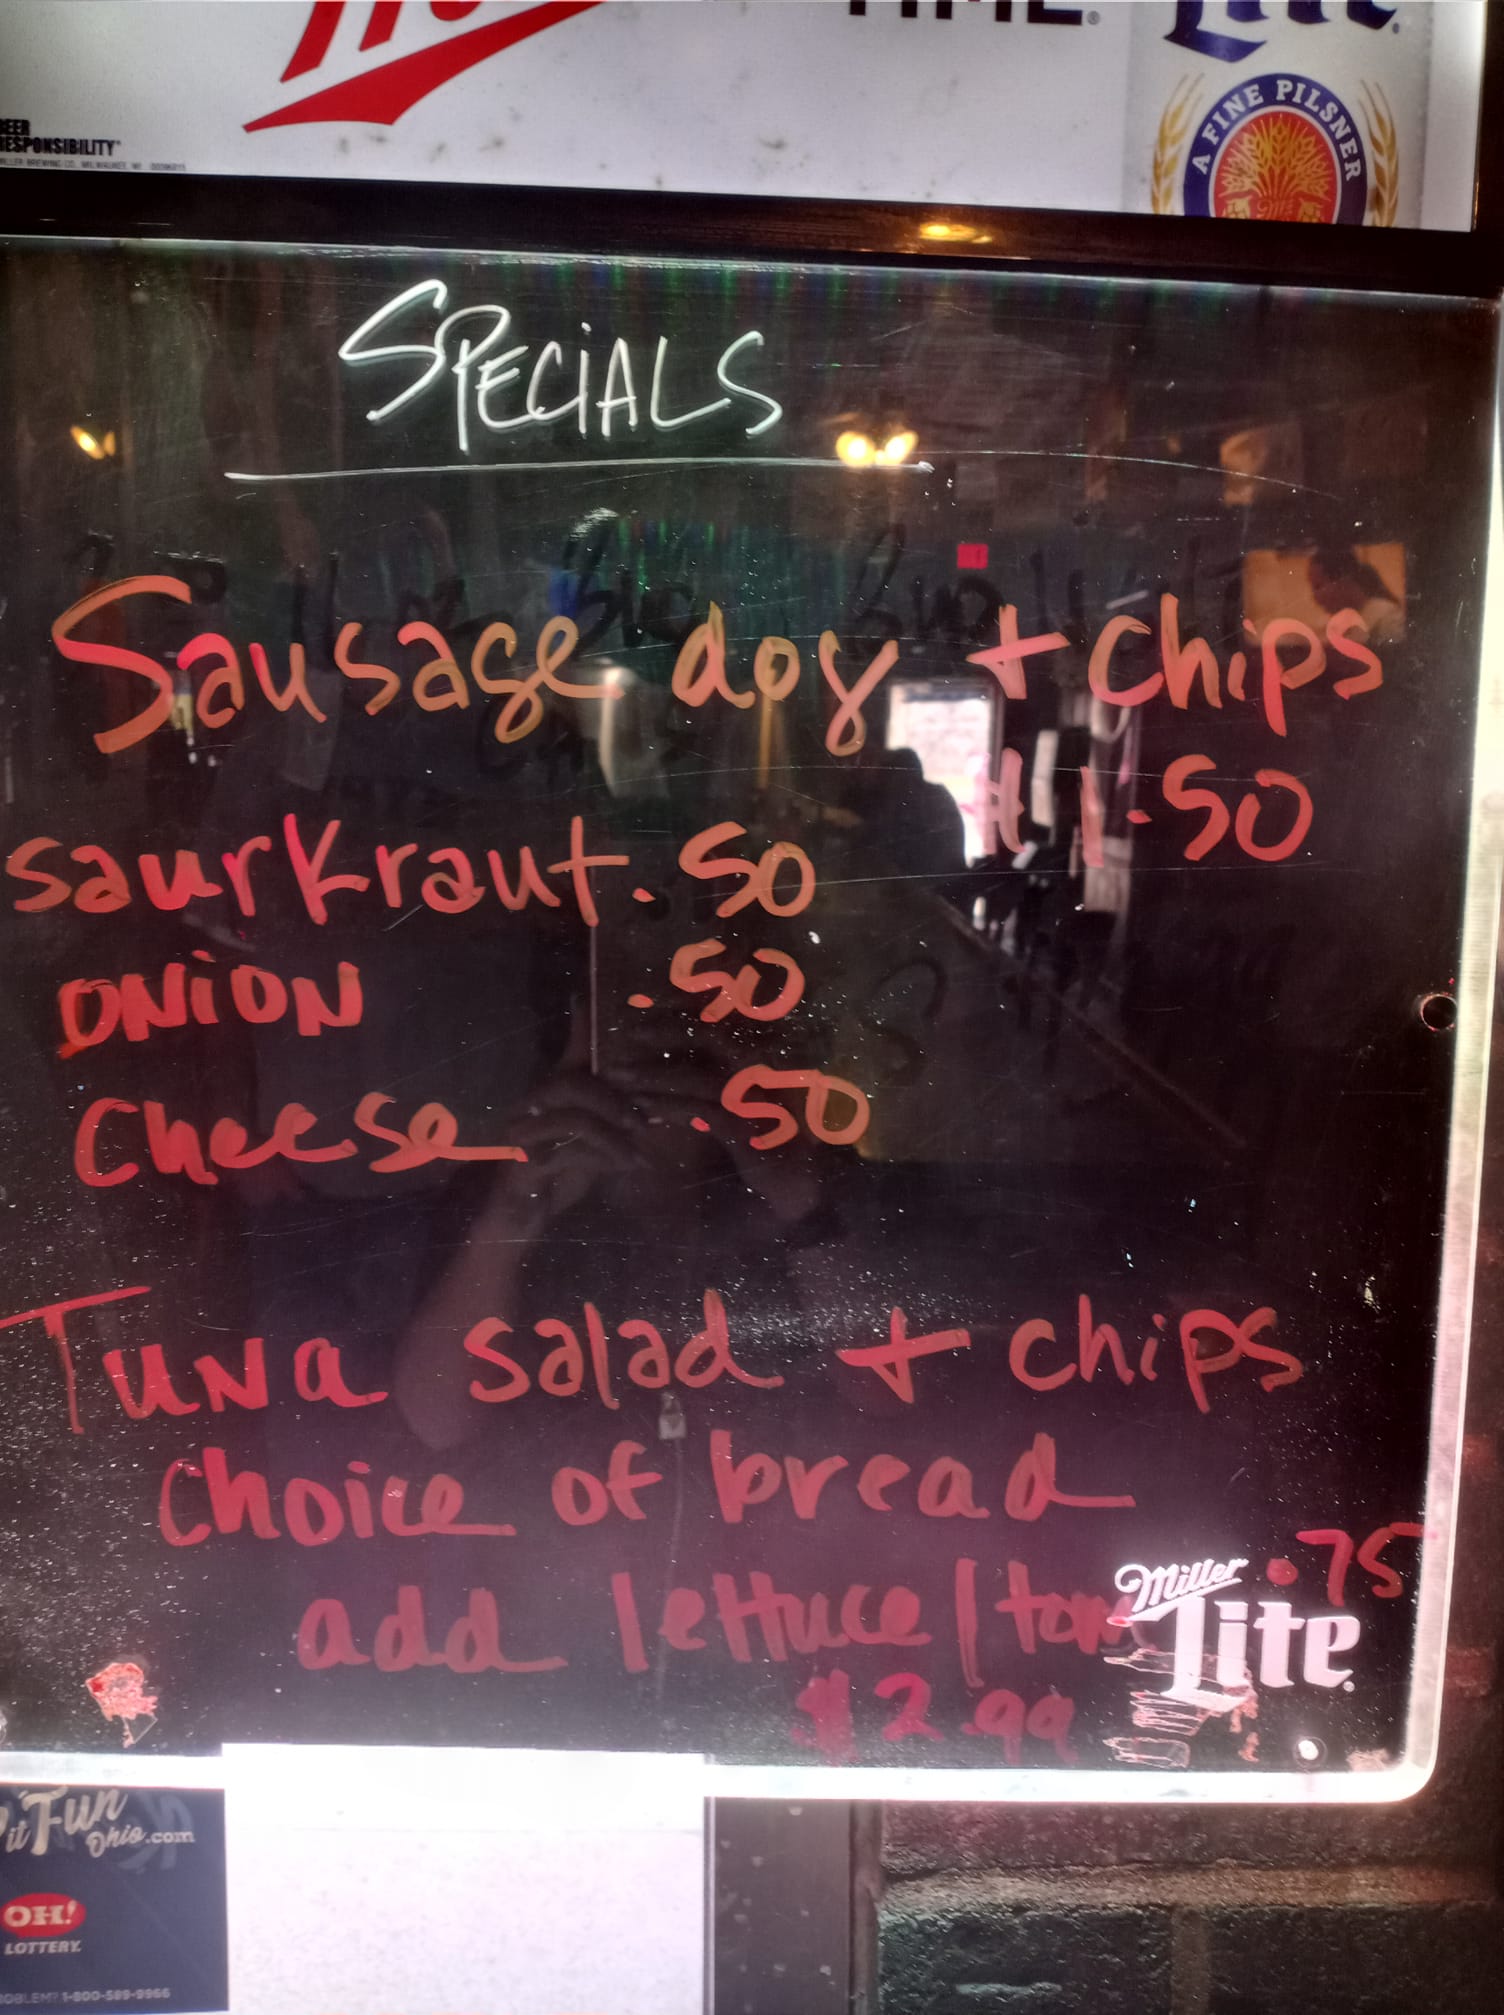 TIME.
Lite
BEER
RESPONSIBILITY
A FINE PILSNER
SPECIALS
Sausage dog + chips
$1.50
saurkraut .50
ONiON .50
Cheese .50
Tuna salad + chips
Choice of bread
.75
add lettuce/tom
$2.99
Miller
Lite
it Fun
Ohio.com
OH!
LOTTERY
1-800-589-9966